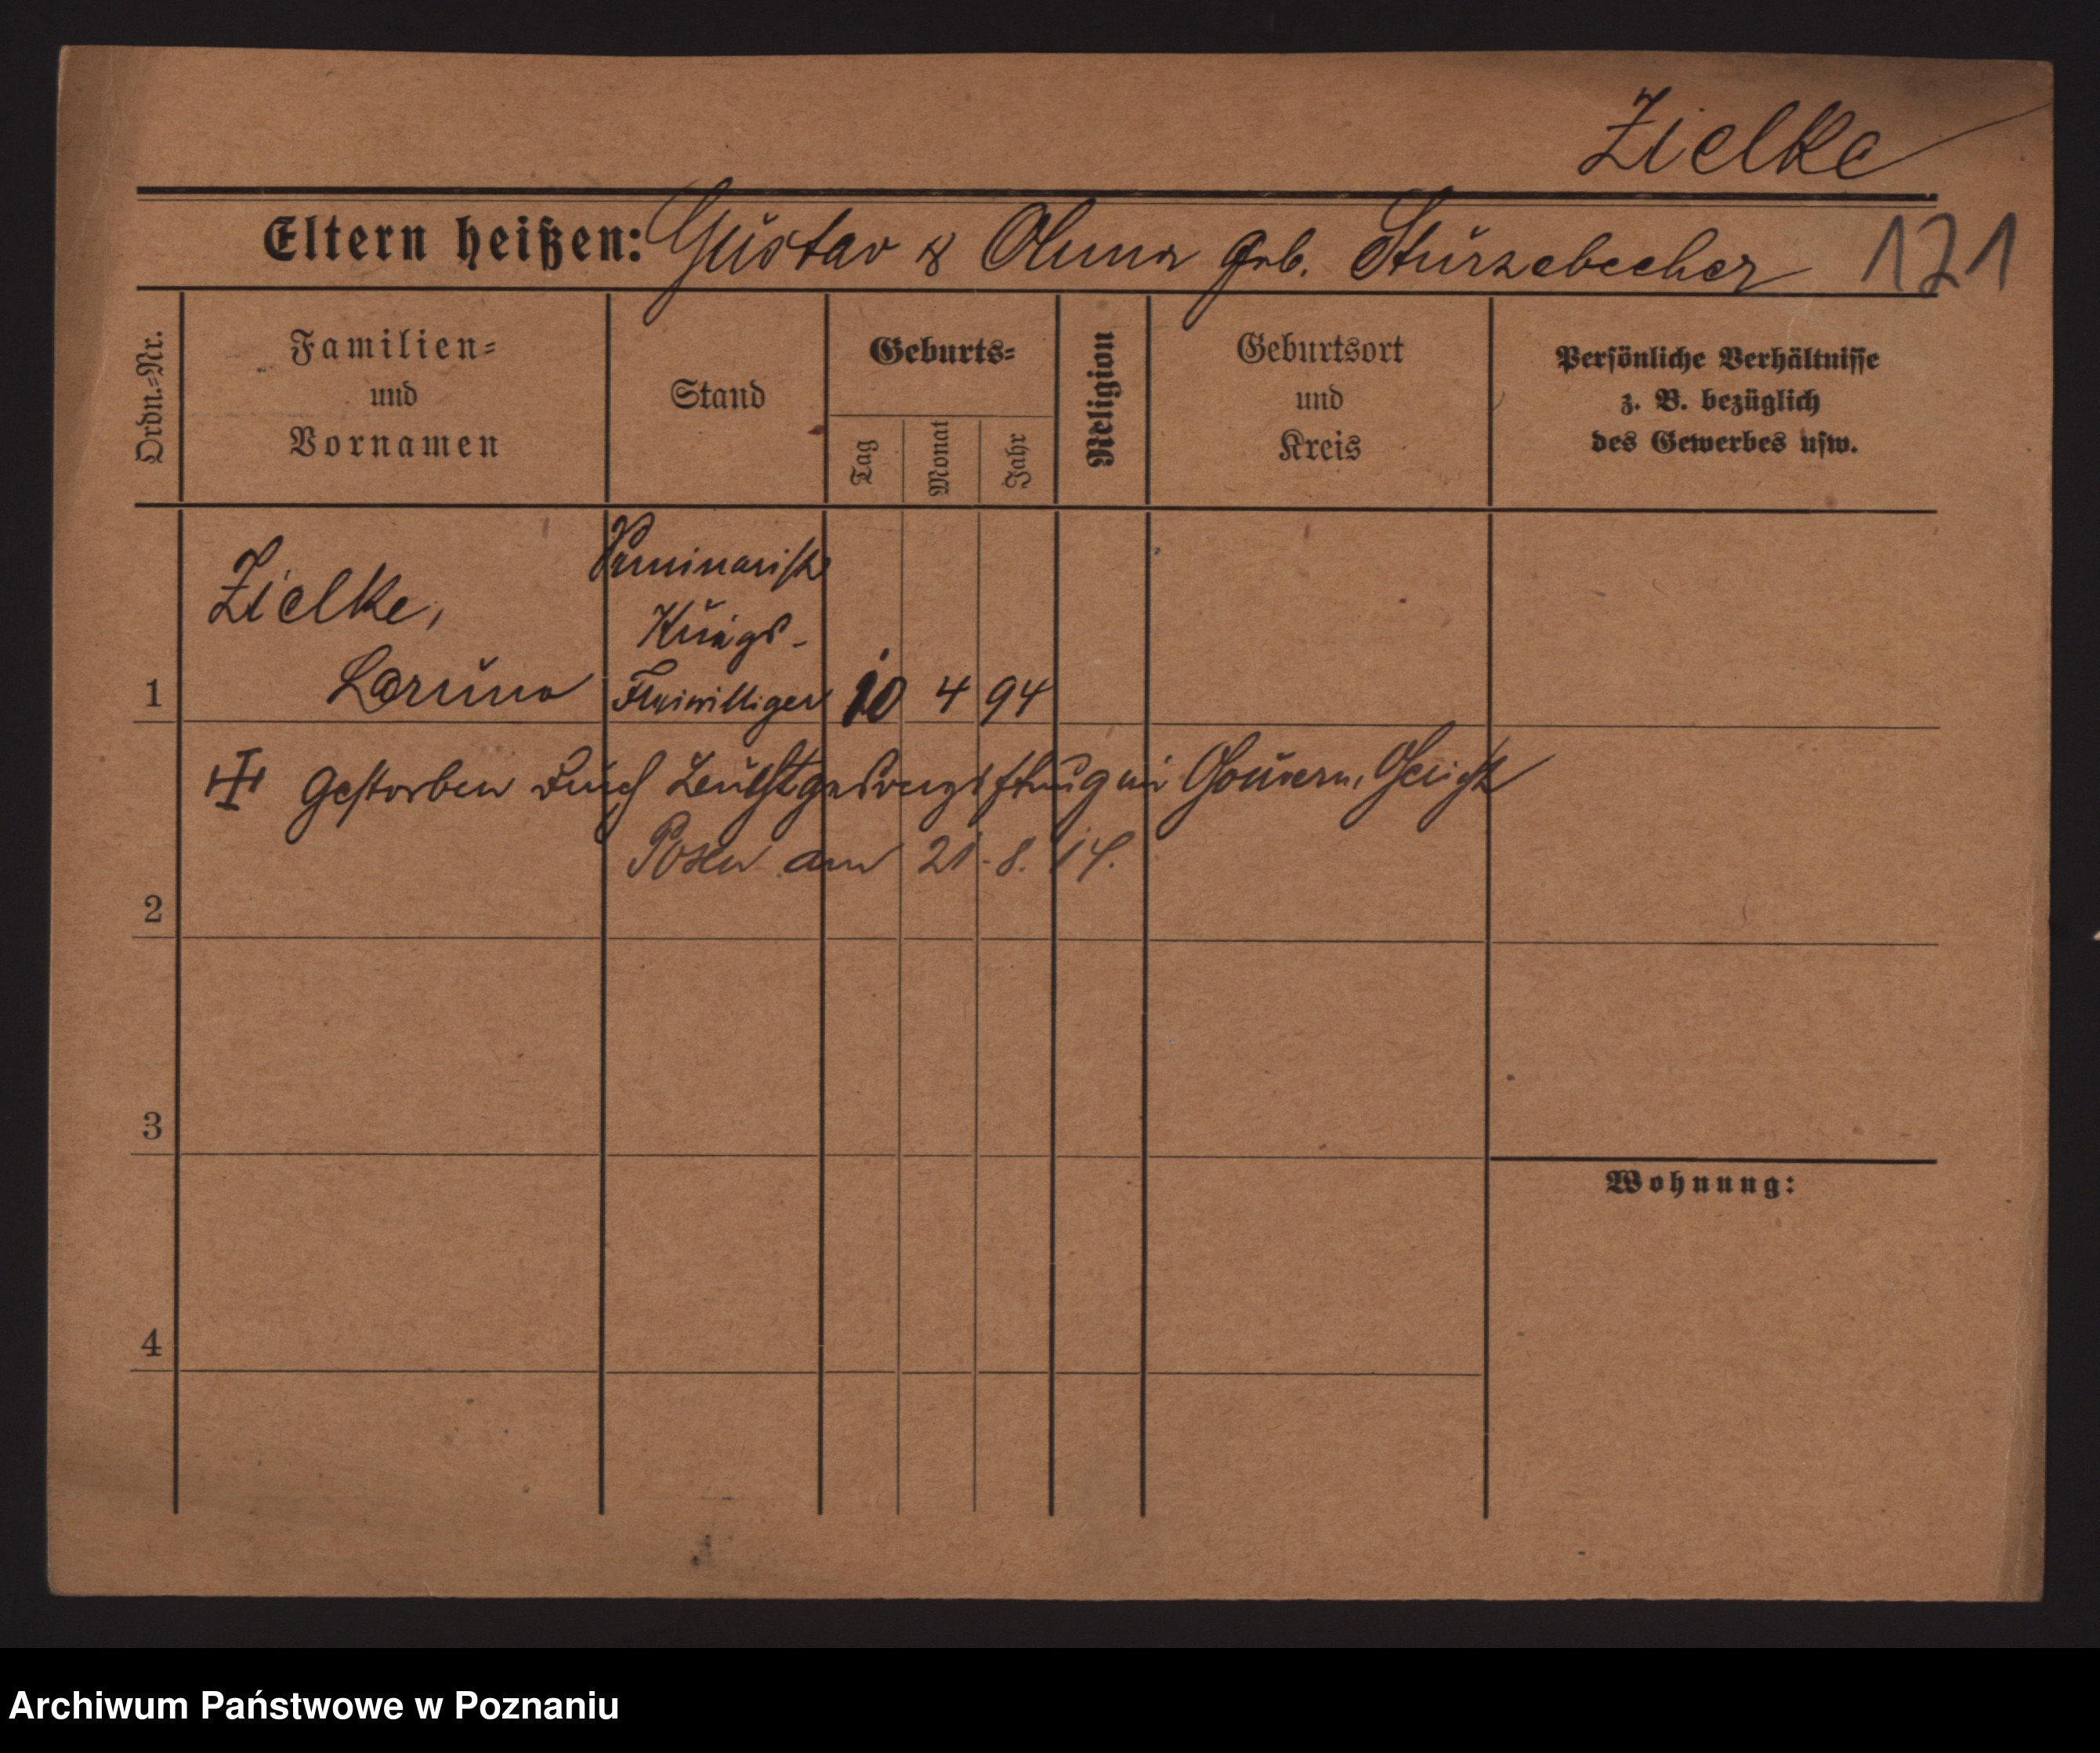 Zielke
Eltern heißen: Gustav & Anna geb. Stürzebecher 121
Ordn.=Nr.
Familien=
und
Vornamen
Stand
Geburts=
Tag
Monat
Jahr
Religion
Geburtsort
und
Kreis
Persönliche Verhältnisse
z. B. bezüglich
des Gewerbes usw.
Seminarist
Kriegs-
1 Zielke, Bruno Freiwilliger 10 4 94
gestorben durch Leuchtgasvergiftung im Gouvern. Gericht
Posen am 21.8.14.
2
3
Wohnung:
4
Archiwum Państwowe w Poznaniu